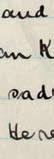 and
an K
sad
Here